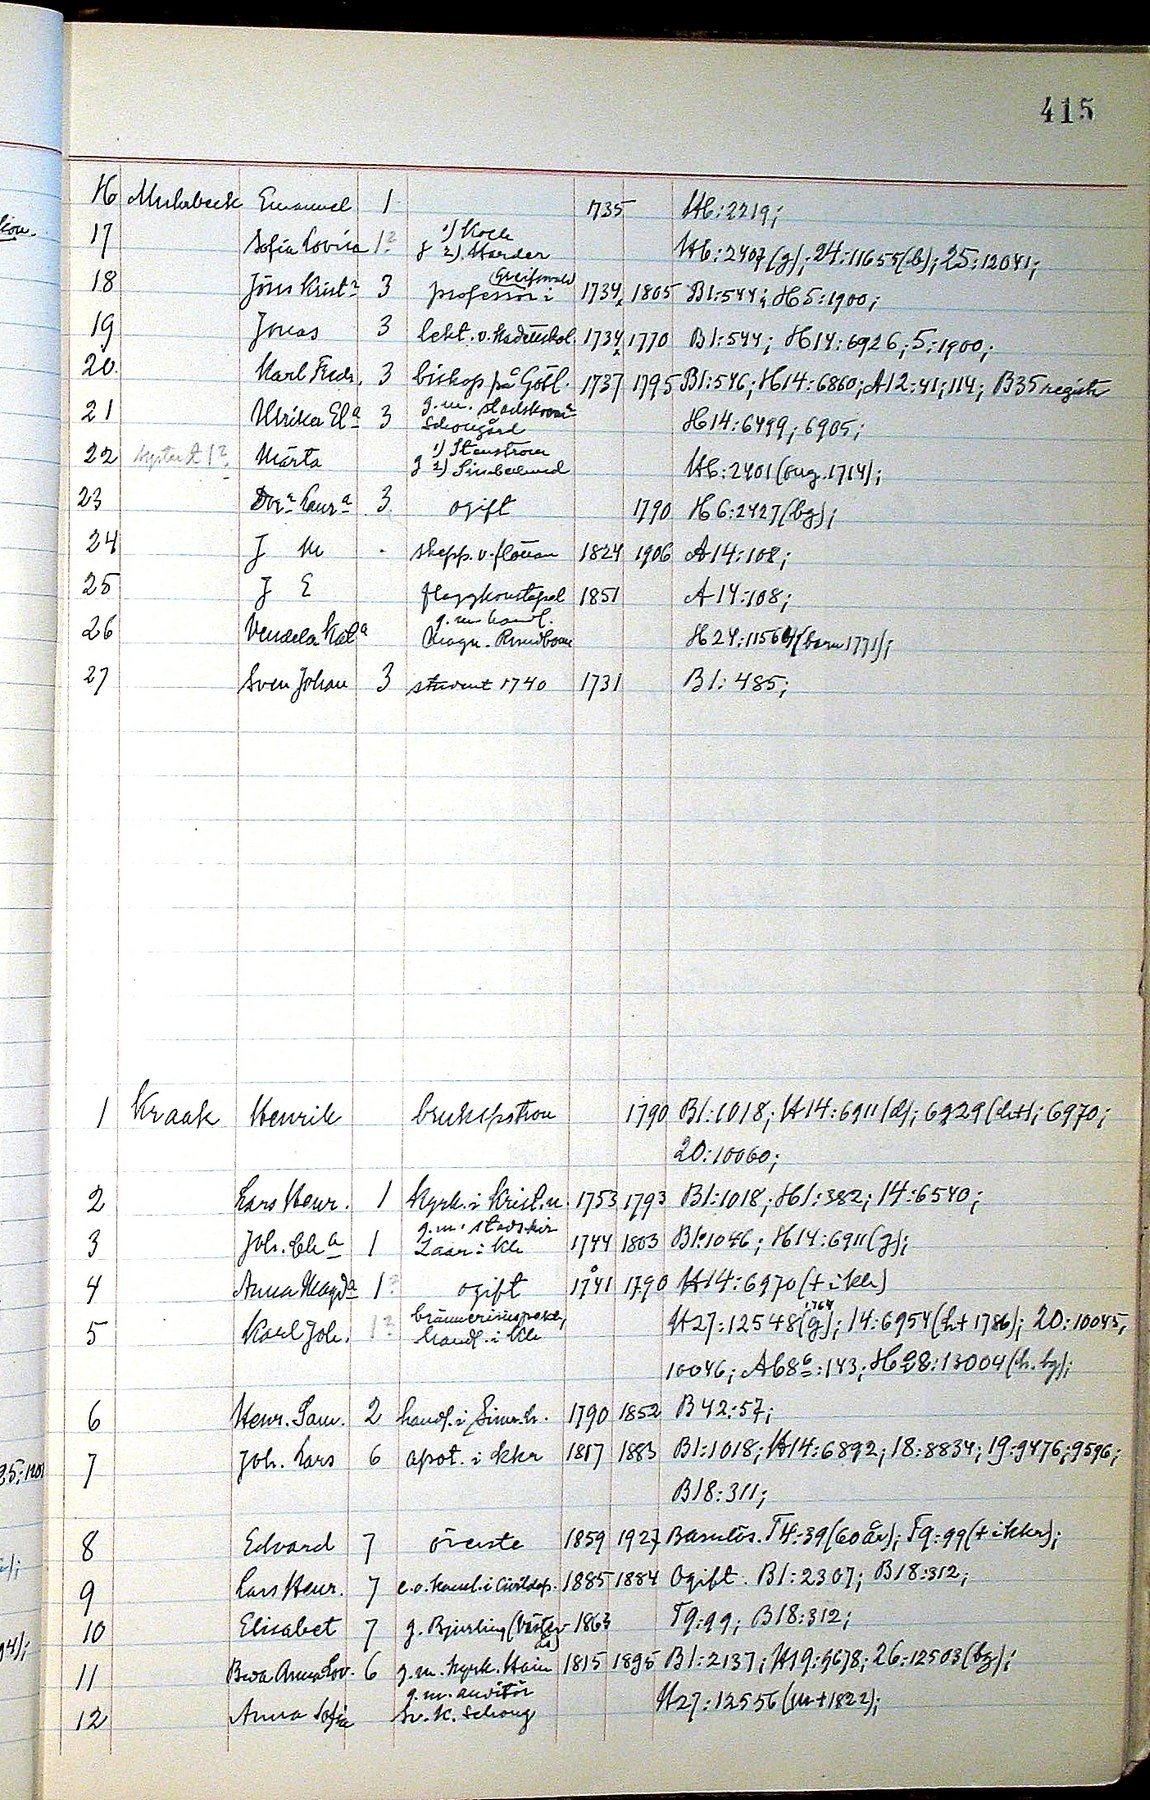 415
16 Muhrbeck Emanuel 1 1735 H6:2219;
17 Sofia Lovisa 1? g 1) Kock 2) Harder H6:2407 (g); 24:11655 (b); 25:12041;
18 Jöns Kristn 3 professor i Greifswald 1734 1805 B1:544; H5:1900;
19 Jonas 3 lekt. v. Kadettskol. 1734 1770 B1:544; H14:6926; 5:1900;
20. Karl Fredr. 3 biskop på Gotl. 1737 1795 B1:546; H14:6860; A12:41; 114; B35 registr
21 Ulrika Ela 3 g.m. H14:6499; 6905;
22 syster t. 1? Märta g 1) Stenström 2) H6:2401 (oug. 1714);
23 3 ogift 1790 H6:2427 (bg);
24 J M - skepp. v. flottan 1824 1906 A14:108;
25 J E flaggkonstapel 1851 A14:108;
26 Vendela Kata g.m. handl. Magn. Rundbom H24:11564 (barn 1771);
27 Sven Johan 3 student 1740 1731 B1:485;
1 Kraak Henrik brukspatron 1790 B1:1018; H14:6911 (d); 6929 (h+); 6970;
20:10060;
2 Lars Henr. 1 kyrk. i Krist.n. 1753 1793 B1:1018; H1:382; 14:6540;
3 Joh. Cha 1 g.m. stadskir Zaar i Kh 1744 1803 B1:1046; H14:6911 (g);
4 Anna Magda 1? ogift 1741 1790 H14:6970 (+ i kh)
5 Karl Joh. 1? handl. i Kh H27:12548 (g 1764); 14:6954 (h+ 1786); 20:10045,
10046; A68b:143; H28:13004 (h. bg);
6 Henr. Sam. 2 handl. i Simr.h. 1790 1852 B42:57;
7 Joh. Lars 6 apot. i kkr 1817 1883 B1:1018; H14:6892; 18:8834; 19:9476; 9596;
B18:311;
8 Edvard 7 överste 1859 1927 Barnlös. T4:39 (60 år); T9:99 (+ i kkr);
9 Lars Henr. 7 e.o. kansl. i Civildep. 1885 1884 Ogift. B1:2307; B18:312;
10 Elisabet 7 g. Bjurling (Västerås) 1863 T9:99; B18:312;
11 Bea Anna Lov. 6 g.m. kyrk. Hain 1815 1895 B1:2137; H19:9678; 26:12503 (bg);
12 Anna Sofia g.m. auditör Sv. K. Schoug H27:12556 (m+ 1822);